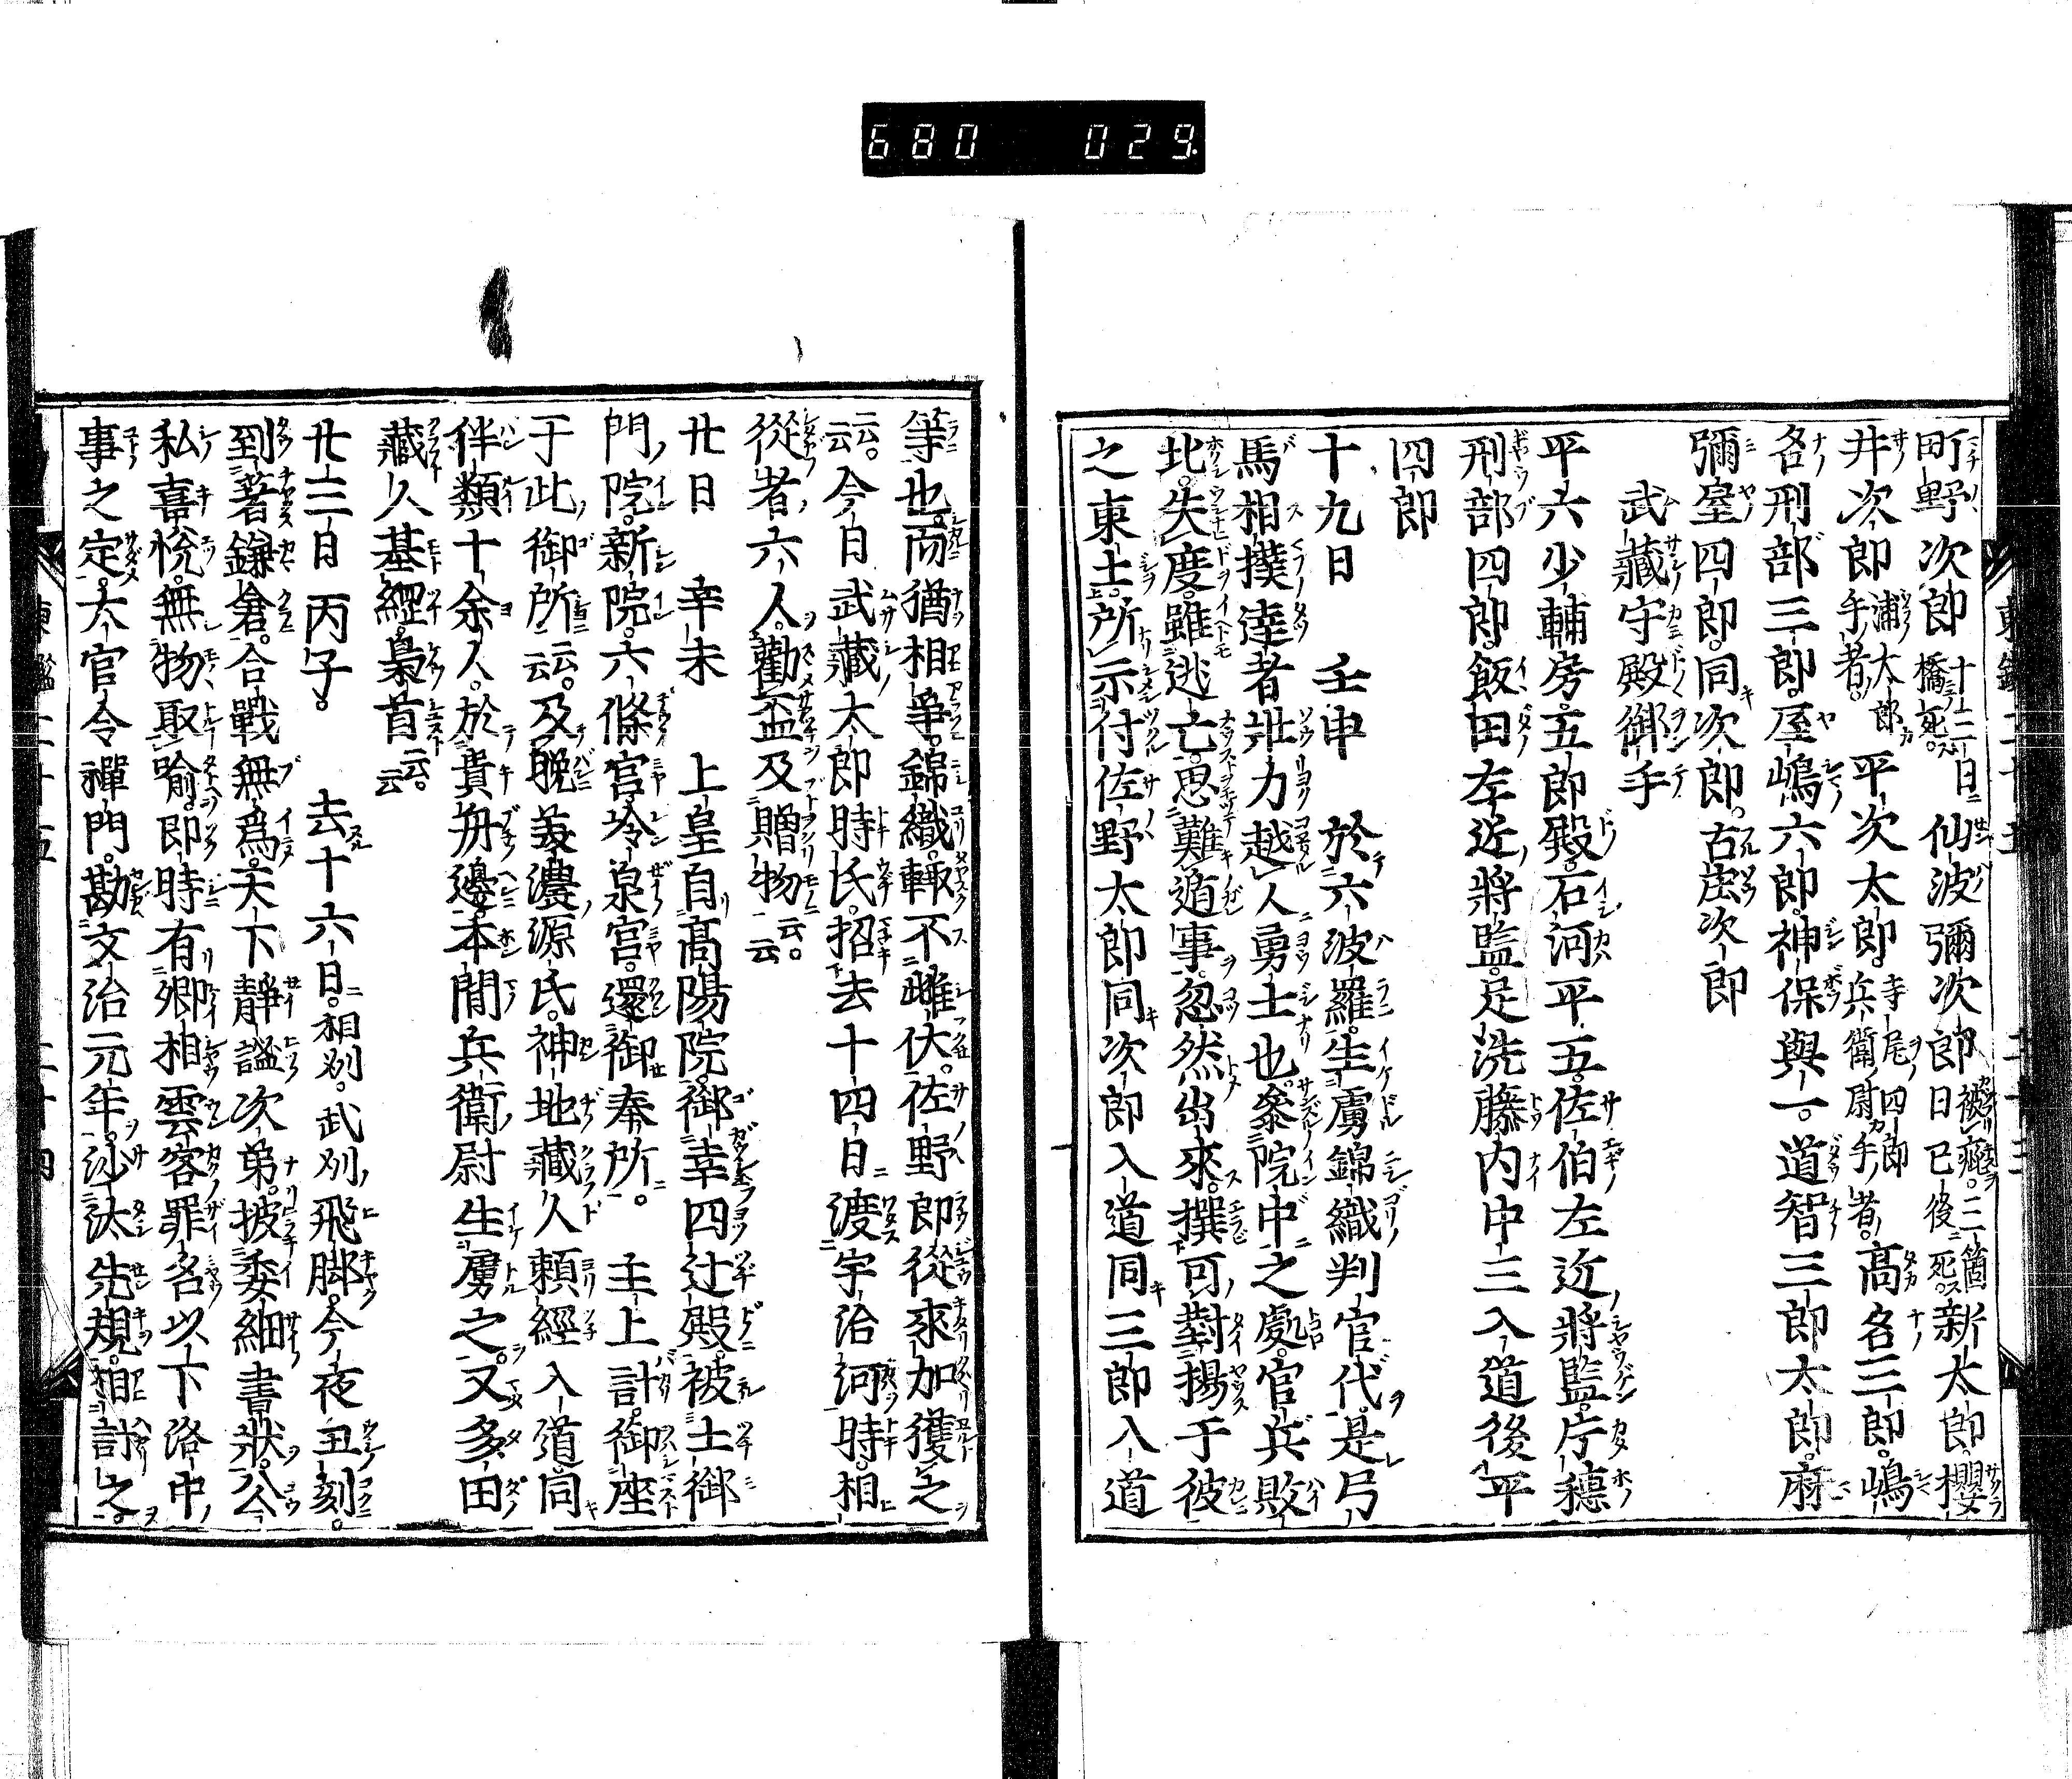 680 029
町野次郎 十二日橋ニテ死ス 仙波彌次郎 被疵三箇日已後ニ死ス 新太郎。櫻
井次郎 浦太郎カ手ノ者。 平次太郎。 寺尾ノ四郎兵衛ノ尉カ手ノ者。 髙名三郎。嶋
名刑部三郎。屋嶋六郎。神保與一。道智三郎太郎。麻
彌屋四郎。同次郎。古庄次郎
武藏守殿御手
平六少輔房。五郎殿。石河平五。佐伯左近將監。庁穗
刑部四郎。飯田左近將監。足洗藤内中三入道後平
四郎
十九日 壬申 於六波羅。生虜錦織判官代。是弓
馬相撲達者壯力越人勇士也。參院中之處。官兵敗
北。失度。雖逃亡。思難遁事。忽然出來。撰可對揚于彼
之東士。所示付佐野太郎同次郎入道同三郎入道
等也。而猶相爭。錦織。輙不雌伏。佐野郎從來加獲之
云云。今日武藏太郎時氏。招去十四日渡宇治河時。相
從者六人。勸盃及贈物云云。
廿日 辛未 上皇自髙陽院。御幸四辻殿。被土御
門院。新院。六條宮。冷泉宮。還御本所。 主上計。御座
于此御所云云。及晩美濃源氏。神地藏人頼經入道同
伴類十余人。於貴舟邊。本間兵衛尉生虜之。又多田
藏人基經。梟首云云。
廿三日 丙子。 去十六日。相刕。武刕飛脚。今夜丑刻。
到著鎌倉。合戰無爲。天下靜謐次第。披委細書狀。公
私喜悦。無物取喩。即時有卿相雲客罪名以下洛中
事之定。大官令禪門。勘文治元年。沙汰先規。相計之。